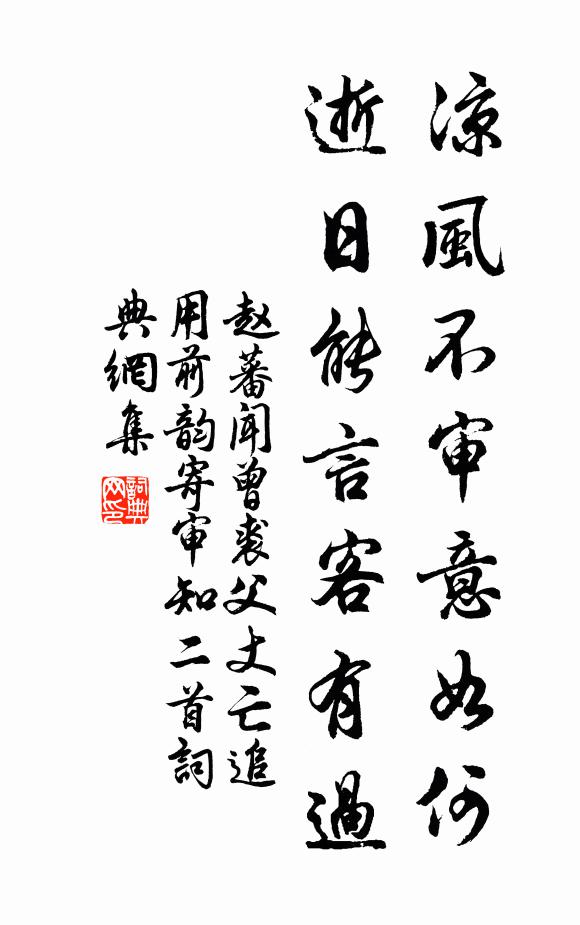 涼風不审意如何
逝日能言客有過
赵蕃聞曾裘父丈亡追
用前韵寄审知二首詞
典網集
詞典
网印